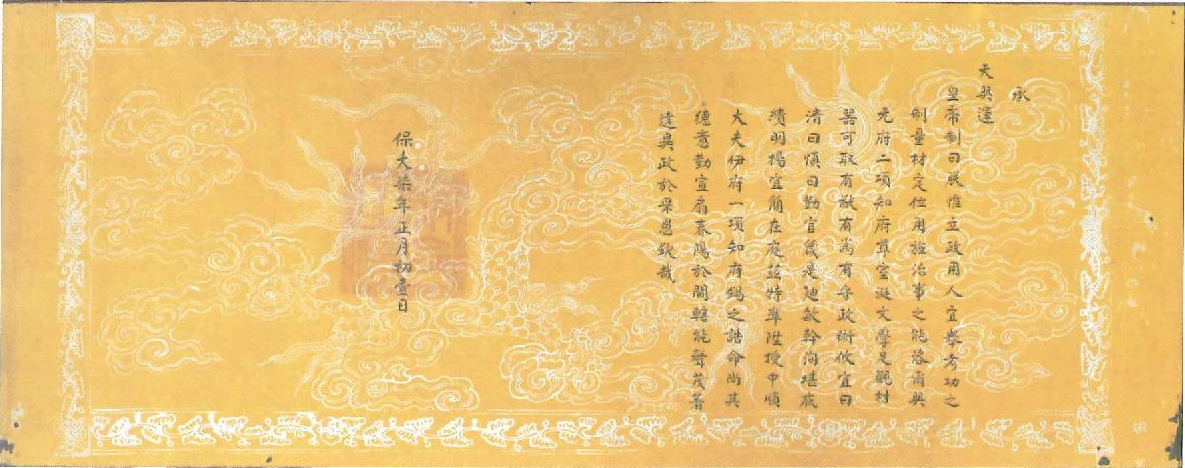 承
天興運
皇帝制曰朕惟立政用人宜舉考功之
制量材定位用旌治事之能咨爾興
元府二項知府單室涎文學足觀材
器可取有猷有為有守政術攸宜曰
清曰慎曰勤官箴是迪 幹洵堪底
績明揚宜簡在庭茲特準陞授中順
大夫伊府一項知府錫之誥命尚其
德意勤宣扇春陽於閭 能聲茂著
達興政於 邑欽哉
保大柒年正月初壹日